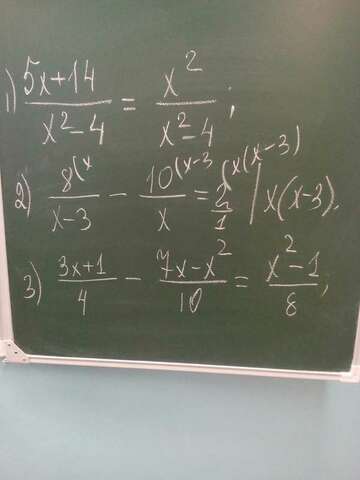 1) (5x+14)/(x²-4) = x²/(x²-4);
2) 8(x/(x-3) - 10(x-3/x = 2(x(x-3)/1 | x(x-3).
3) (3x+1)/4 - (7x-x²)/10 = (x²-1)/8;